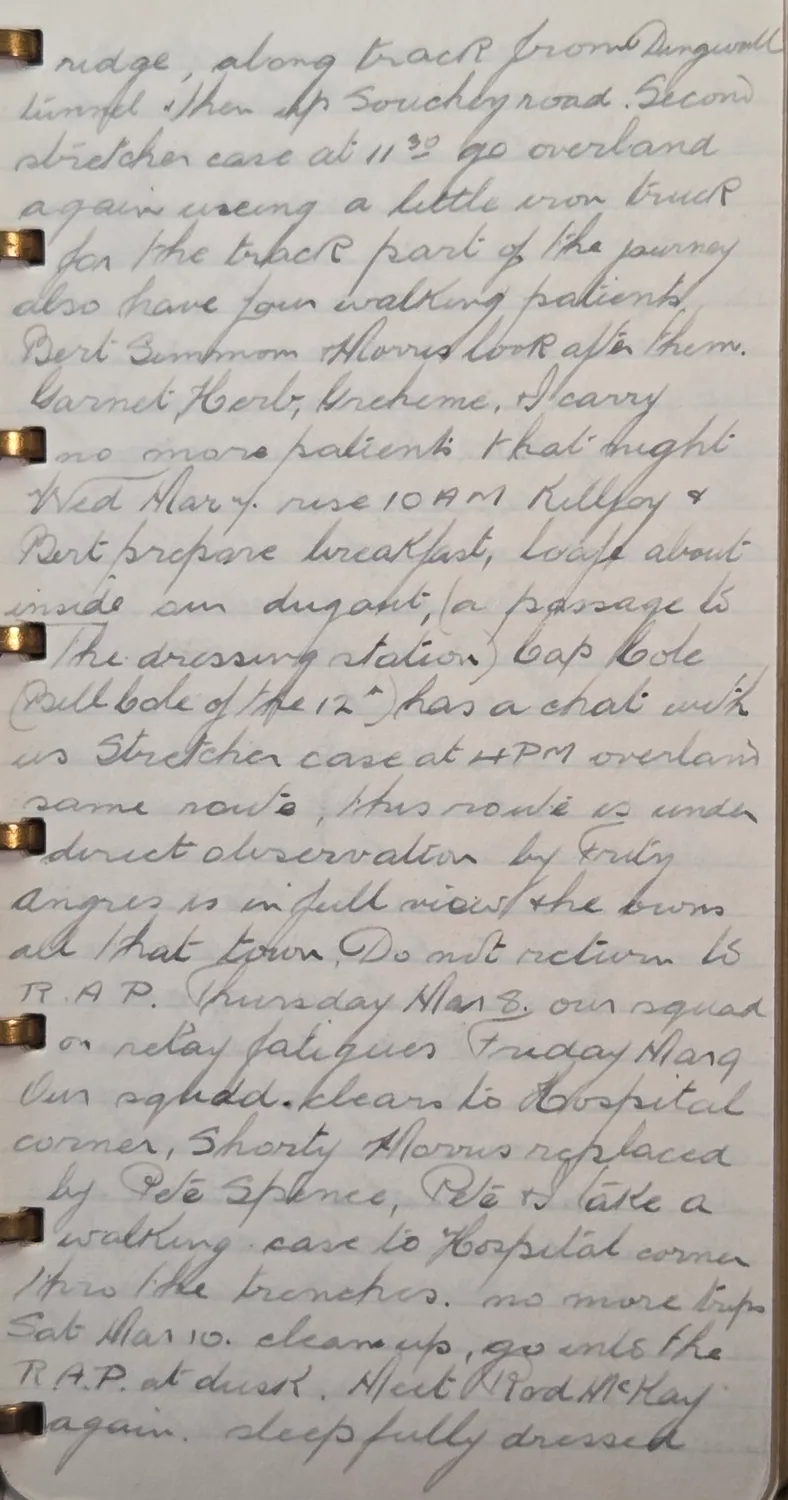 ridge, along track from Dingwall
tunnel & then up Souchey road. Second
stretcher case at 11 30 go overland
again useing a little iron truck
for the track part of the journey
also have four walking patients
Bert Simmom & Morris look after them.
Garnet, Herb, Greheme, & I carry
no more patients that night
Wed Mar 7. rise 10 AM Killjoy &
Bert prepare breakfast, loafe about
inside our dugout, (a passage to
the dressing station) Cap Cole
(Bill Cole of the 12th) has a chat with
us Stretcher case at 4 PM overland
same route, this route is under
direct observation by Fritz
Angres is in full view & he owns
all that town. Do not return to
R.A.P. Thursday Mar 8. our squad
on relay fatigues Friday Mar 9
Our squad. clears to Hospital
corner, Shorty Morris replaced
by Pete Spence, Pete & I take a
walking case to Hospital corner
thro the trenches. no more trips
Sat Mar 10. clean up, go into the
R.A.P. at dusk. Meet Rod McKay
again. sleep fully dressed